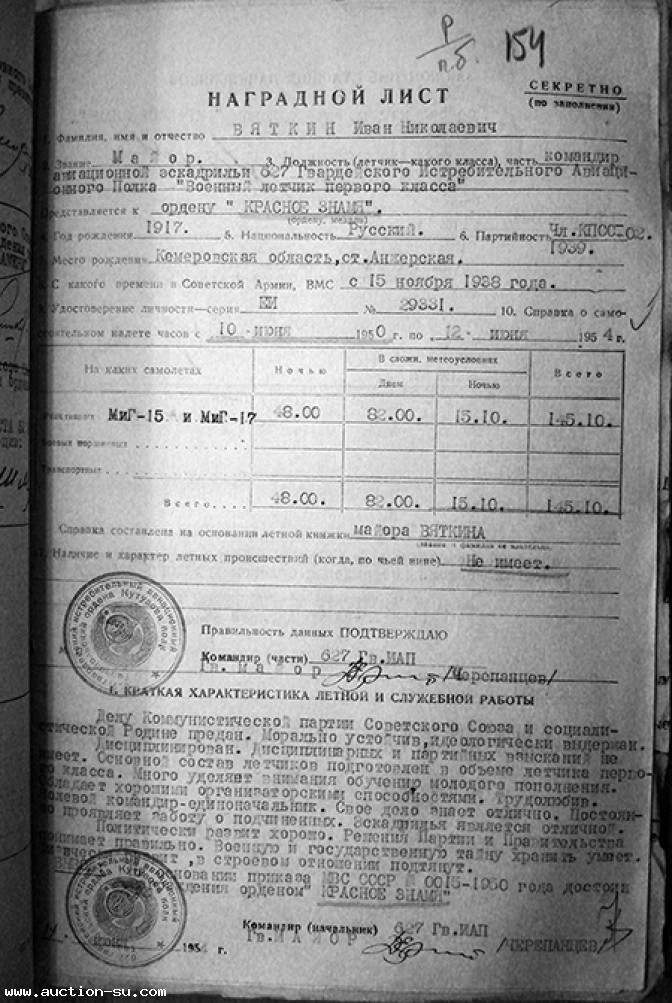 Р
п.б. 154
СЕКРЕТНО
(по заполнении)
НАГРАДНОЙ ЛИСТ
1. Фамилия, имя и отчество ВЯТКИН Иван Николаевич
2. Звание Майор. 3. Должность (летчик—какого класса), часть командир
авиационной эскадрильи 627 Гвардейского Истребительного Авиаци-
онного Полка "Военный летчик первого класса"
Представляется к ордену " КРАСНОЕ ЗНАМЯ".
(ордену, медали)
Год рождения 1917. 5. Национальность Русский. 6. Партийность Чл.КПСС-с
1939.
Место рождения Кемеровская область,ст.Анжерская.
С какого времени в Советской Армии, ВМС с 15 ноября 1938 года.
Удостоверение личности—серия ЕИ № 29331. 10. Справка о само-
стоятельном налете часов с 10 июня 1950 г. по 12 июня 1954 г.
На каких самолетах Ночью В сложн. метеоусловиях Всего
Днем Ночью
МиГ-15 и МиГ-17 48.00 82.00. 15.10. 145.10.
Боевых поршневых
Транспортных
Всего.... 48.00. 82.00. 15.10. 145.10.
Справка составлена на основании летной книжки майора ВЯТКИНА
(звание и фамилия)
Наличие и характер летных происшествий (когда, по чьей вине) Не имеет.
Правильность данных ПОДТВЕРЖДАЮ
Командир (части) 627 Гв.ИАП
Гв. Майор /Черепанцев/
1. КРАТКАЯ ХАРАКТЕРИСТИКА ЛЕТНОЙ И СЛУЖЕБНОЙ РАБОТЫ
Делу Коммунистической партии Советского Союза и социали-
стической Родине предан. Морально устойчив,идеологически выдержан.
Дисциплинирован. Дисциплинарных и партийных взысканий не
имеет. Основной состав летчиков подготовлен в объеме летчика перво-
го класса. Много уделяет внимания обучению молодого пополнения.
Обладает хорошими организаторскими способностями. Трудолюбив.
Волевой командир-единоначальник. Свое дело знает отлично. Постоян-
но проявляет работу о подчиненных. Эскадрилья является отличной.
Политически развит хорошо. Решения Партии и Правительства
понимает правильно. Военную и государственную тайну хранить умеет.
,в строевом отношении подтянут.
основании приказа МВС СССР № 0015-1950 года достоин
награждения орденом" КРАСНОЕ ЗНАМЯ"
Командир (начальник) 627 Гв.ИАП
Гв.МАЙОР /ЧЕРЕПАНЦЕВ/
июня 1954 г.
www.auction-su.com